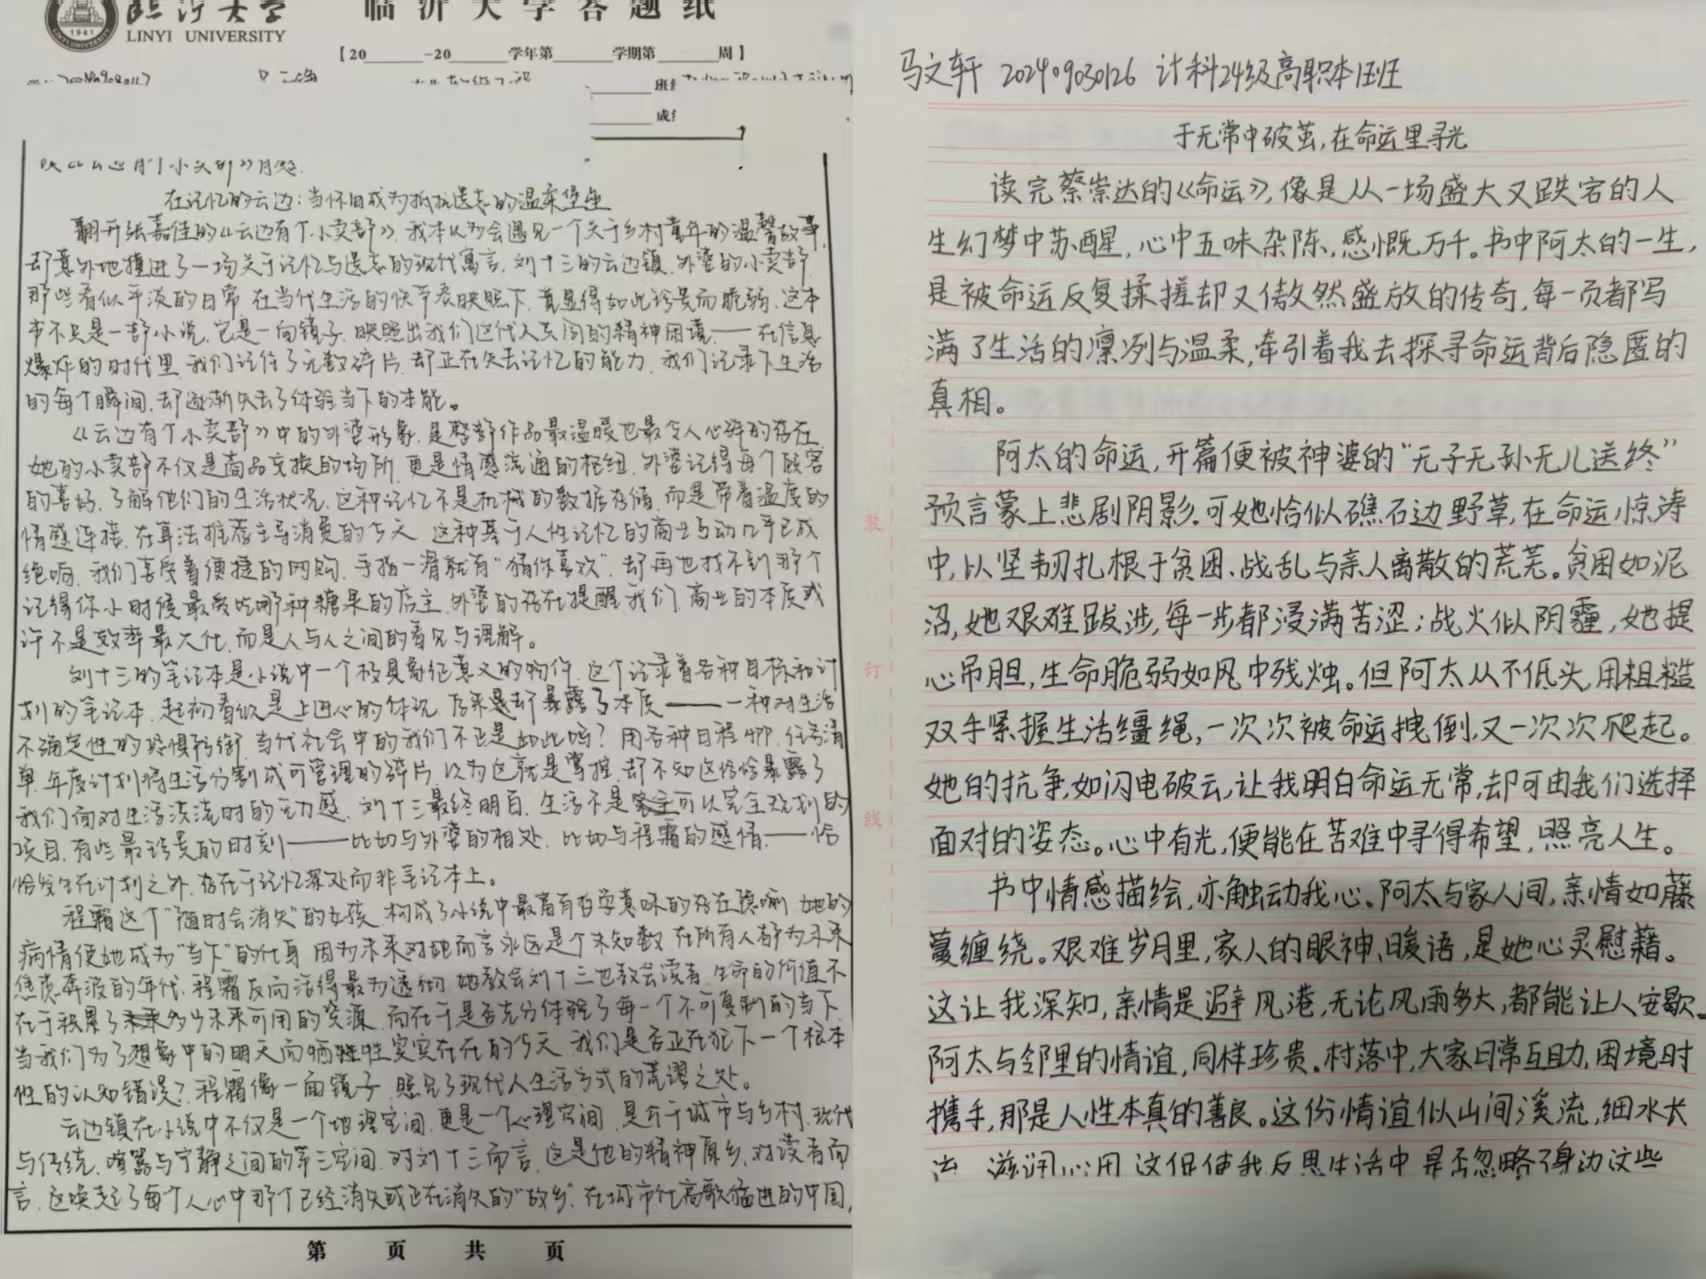 临沂大学
LINYI UNIVERSITY
1941
临沂大学答题纸
【20____-20____学年第____学期第____周】
班级
在记忆的云边:当怀旧成为抵抗遗忘的温柔堡垒
翻开张嘉佳的《云边有个小卖部》,我本以为会遇见一个关于乡村青年的温馨故事,
却意外地撞进了一场关于记忆与遗忘的现代寓言。刘十三的云边镇,外婆的小卖部,
那些看似平淡的日常,在当代生活的快节奏映照下,竟显得如此珍贵而脆弱。这本
书不只是一部小说,它是一面镜子,映照出我们这代人共同的精神困境——在信息
爆炸的时代里,我们记住了无数碎片,却正在失去记忆的能力,我们记录下生活
的每个瞬间,却逐渐失去了体验当下的本能。
《云边有个小卖部》中的外婆形象,是整部作品最温暖也最令人心碎的存在。
她的小卖部不仅是商品交换的场所,更是情感流通的枢纽。外婆记得每个顾客
的喜好,了解他们的生活状况,这种记忆不是机械的数据存储,而是带着温度的
情感连接。在算法推荐主导消费的今天,这种基于人性记忆的商业互动几乎已成
绝响。我们享受着便捷的网购,手指一滑就有“猜你喜欢”,却再也找不到那个
记得你小时候最爱吃哪种糖果的店主。外婆的存在提醒我们,商业的本质或
许不是效率最大化,而是人与人之间的看见与理解。
刘十三的笔记本是小说中一个极具象征意义的物件。这个记录着各种目标和计
划的笔记本,起初看似是上进心的体现,后来却暴露了本质——一种对生活
不确定性的恐惧防御。当代社会中的我们不也是如此吗?用各种日程APP、任务清
单、年度计划将生活分割成可管理的碎片,以为这就是掌控,却不知这恰恰暴露了
我们面对生活洪流时的无力感。刘十三最终明白,生活不是可以完全规划的
项目,有些最珍贵的时刻——比如与外婆的相处,比如与程霜的感情——恰
恰发生在计划之外,存在于记忆深处而非笔记本上。
程霜这个“随时会消失”的女孩,构成了小说中最富有哲学意味的存在隐喻。她的
病情使她成为“当下”的化身,因为未来对她而言永远是个未知数。在所有人都为未来
焦虑奔波的年代,程霜反而活得最为透彻。她教会刘十三也教会读者,生命的价值不
在于积累了多少未来可用的资源,而在于是否充分体验了每一个不可复制的当下。
当我们为了想象中的明天而牺牲实实在在的今天,我们是否正在犯下一个根本
性的认知错误?程霜像一面镜子,照见了现代人生活方式的荒谬之处。
云边镇在小说中不仅是一个地理空间,更是一个心理空间,是介于城市与乡村、现代
与传统、喧嚣与宁静之间的第三空间。对刘十三而言,这是他的精神原乡,对读者而
言,这唤起了每个人心中那个已经消失或正在消失的“故乡”。在城市化高歌猛进的中国,
第 页 共 页
马文轩 202409030126 计科24级高职本1班
于无常中破茧,在命运里寻光
读完蔡崇达的《命运》,像是从一场盛大又跌宕的人
生幻梦中苏醒,心中五味杂陈,感慨万千。书中阿太的一生,
是被命运反复揉搓却又傲然盛放的传奇,每一页都写
满了生活的凛冽与温柔,牵引着我去探寻命运背后隐匿的
真相。
阿太的命运,开篇便被神婆的“无子无孙无儿送终”
预言蒙上悲剧阴影。可她恰似礁石边野草,在命运惊涛
中,以坚韧扎根于贫困、战乱与亲人离散的荒芜。贫困如泥
沼,她艰难跋涉,每一步都浸满苦涩;战火似阴霾,她提
心吊胆,生命脆弱如风中残烛。但阿太从不低头,用粗糙
双手紧握生活缰绳,一次次被命运拽倒,又一次次爬起。
她的抗争,如闪电破云,让我明白命运无常,却可由我们选择
面对的姿态。心中有光,便能在苦难中寻得希望,照亮人生。
书中情感描绘,亦触动我心。阿太与家人间,亲情如藤
蔓缠绕。艰难岁月里,家人的眼神、暖语,是她心灵慰藉。
这让我深知,亲情是避风港,无论风雨多大,都能让人安歇。
阿太与邻里的情谊,同样珍贵。村落中,大家日常互助,困境时
携手,那是人性本真的善良。这份情谊似山间溪流,细水长
流,滋润心田。这促使我反思生活中是否忽略了身边这些
装
订
线